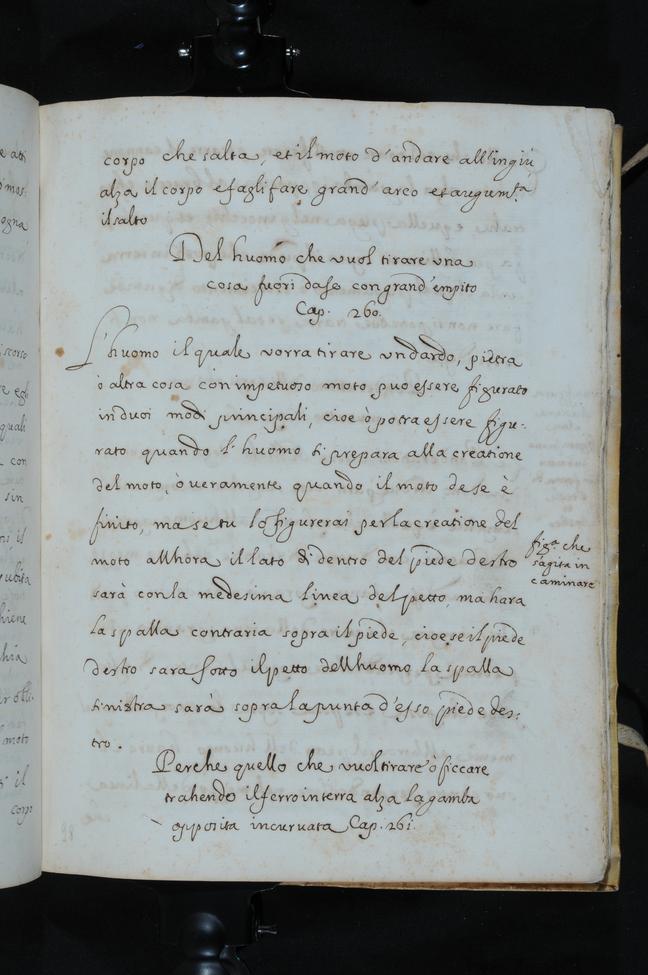 corpo che salta, et il moto d'andare all'ingiù
alza il corpo e fagli fare grand'arco et augumta
il salto
Del huomo che vuol tirare una
cosa fuori da se con grand'empito
Cap. 260.
L'huomo il quale vorra tirare un dardo, pietra
ò altra cosa con impetuoso moto può essere figurato
in duoi modi principali, cioe ò potra essere figu-
rato quando l'huomo si prepara alla creatione
del moto, ò veramente quando il moto de se è
finito, ma se tu lo figurerai per la creatione del
moto allhora il lato di dentro del piede destro
sarà con la medesima linea del petto, ma hara
la spalla contraria sopra il piede, cioe se il piede
destro sara sotto il petto dell huomo la spalla
sinistra sarà sopra la punta d'esso piede des:
tro.
figa. che
s'agita in
caminare
Perche quello che vuol tirare ò ficcare
trahendo il ferro in terra alza la gamba
opposita incuruata Cap. 261.
98
e
ogna
iscorso
quali
con
sin
ni il
hiene
moto
il
corpo